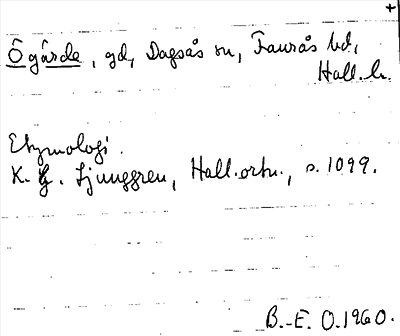 Ögärde, gd, Dagsås sn, Faurås hd,
Hall. l.
Etymologi.
K. G. Ljunggren, Hall. ortn., s. 1099.
B.-E. O. 1960.